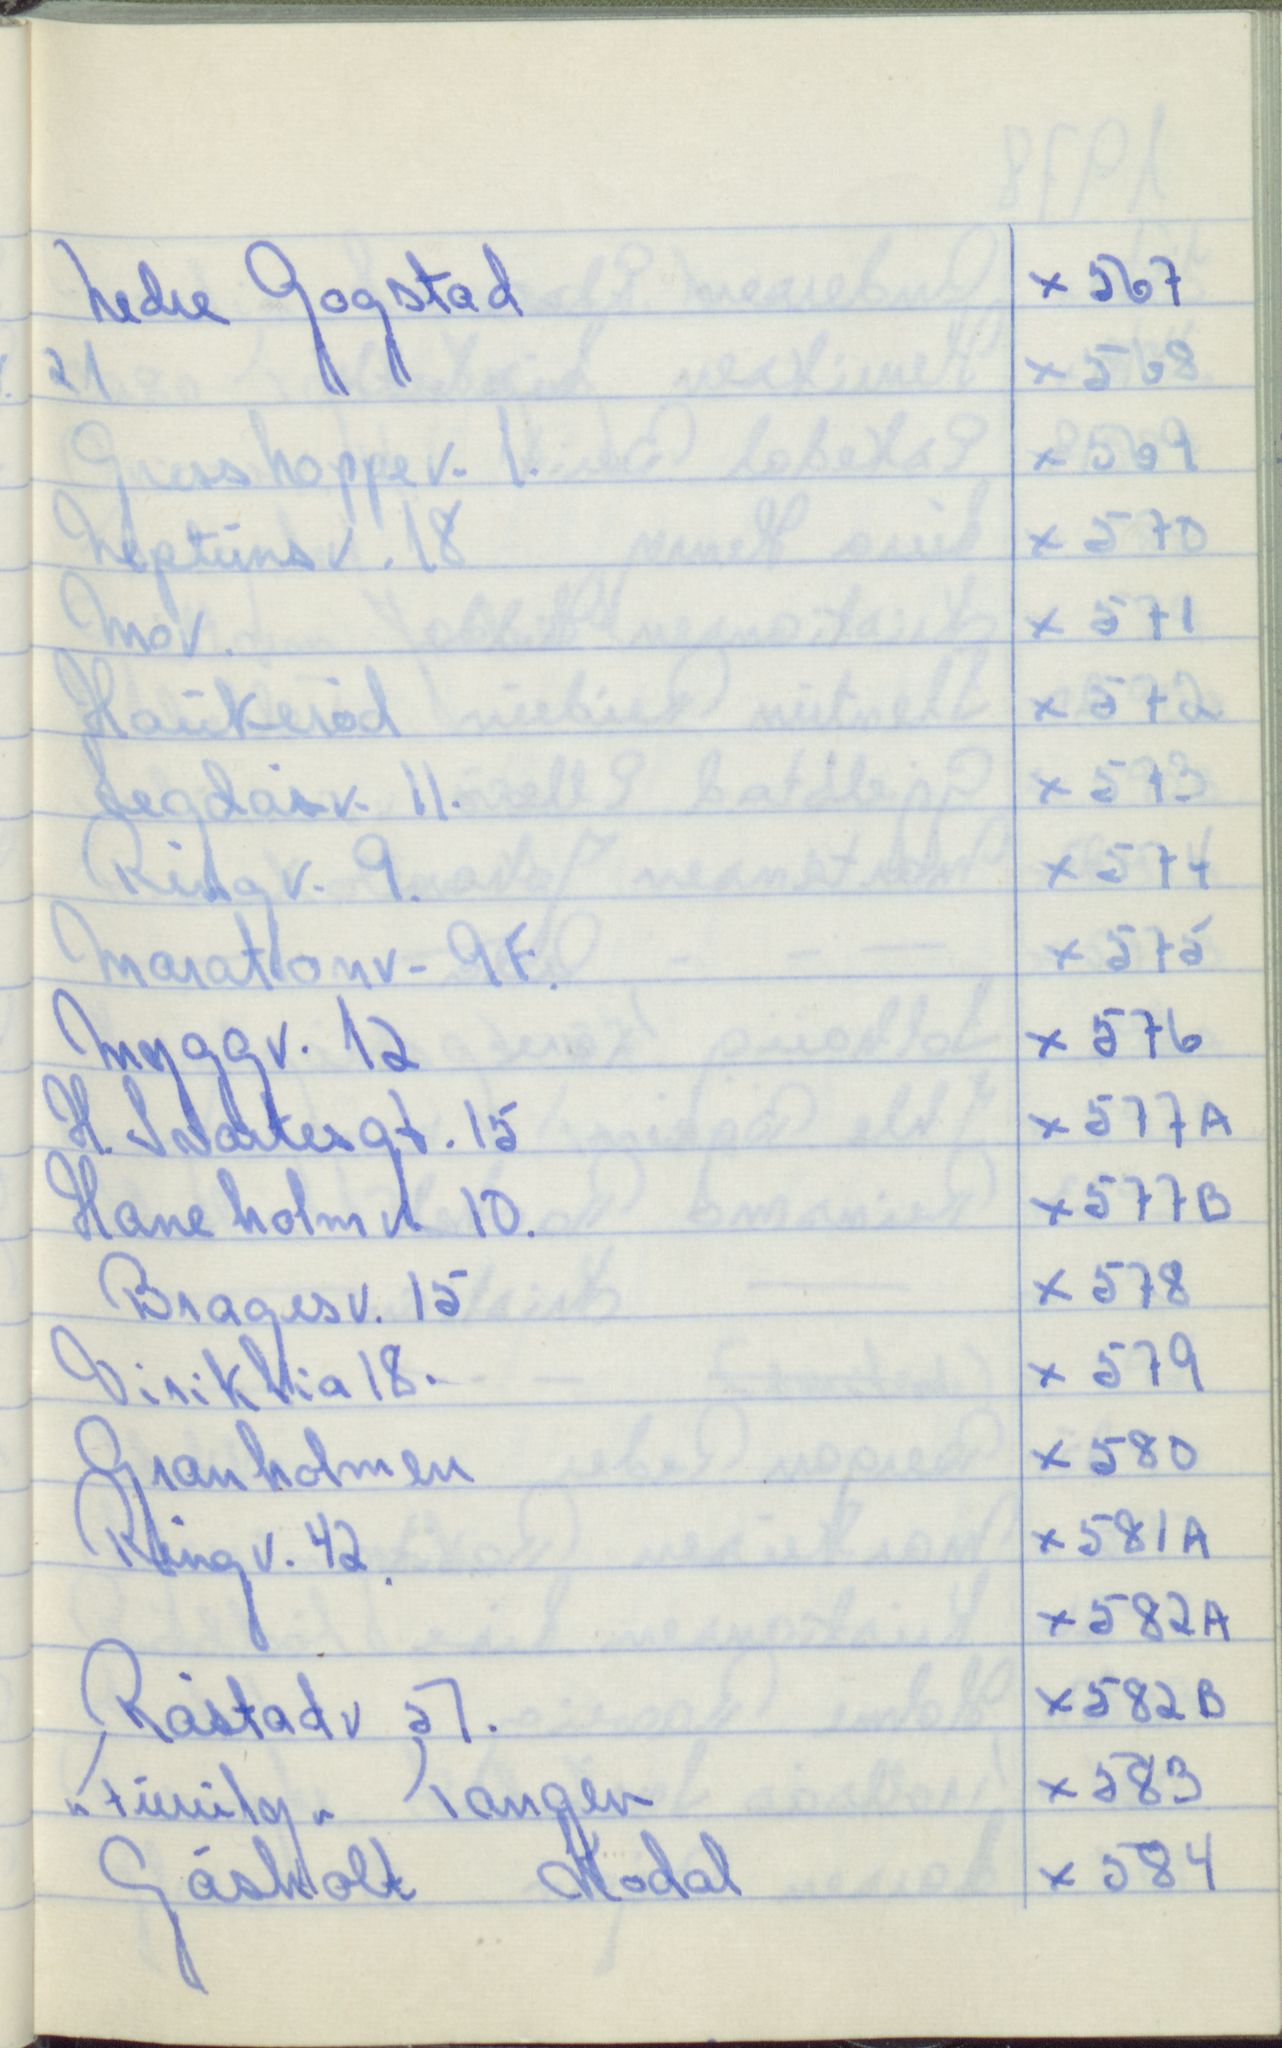 Nedre Gogstad x 567
21 x 568
Gresshoppev. 1. x 569
Neptünsv. 18 x 570
Mov. x 571
Haükeröd x 572
Legdåsv. 11. x 573
Ringv. 9. x 574
Maratonv- 9F. x 575
Myggv. 12 x 576
H. Svartesgt. 15 x 577A
Haneholmv. 10. x 577B
Bragesv. 15 x 578
Virik lia 18. x 579
Granholmen x 580
Ringv. 42. x 581A
x 582A
Råstadv 57. x 582B
Tangen x 583
Gåsholt Kodal x 584